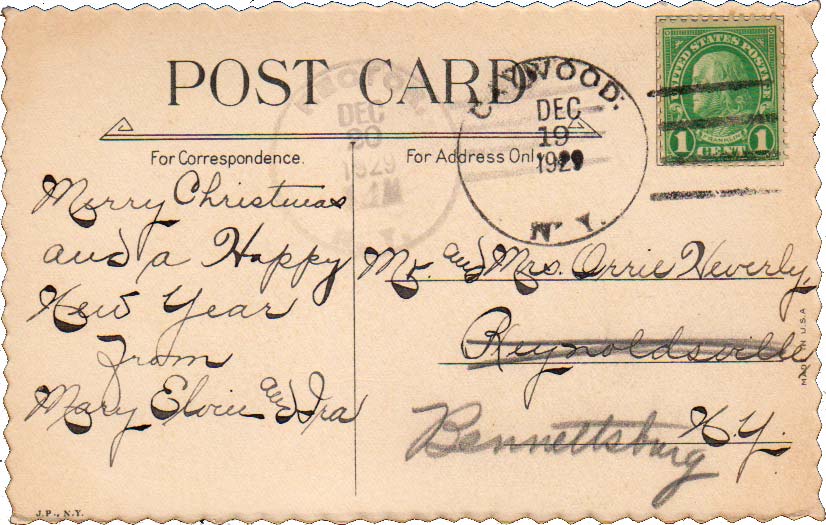 POST CARD
HECTOR.
DEC
20
1929
N.Y.
CAYWOOD.
DEC
19
1929
N.Y.
UNITED STATES POSTAGE
FRANKLIN
1 CENT 1
For Correspondence.
For Address Only
Merry Christmas
and a Happy
New Year
from
Mary Elvin and Ira
Mr. and Mrs. Orrie Heverly,
Reynoldsville
Bennettsburg
N.Y.
MADE IN U.S.A
J.P., N.Y.